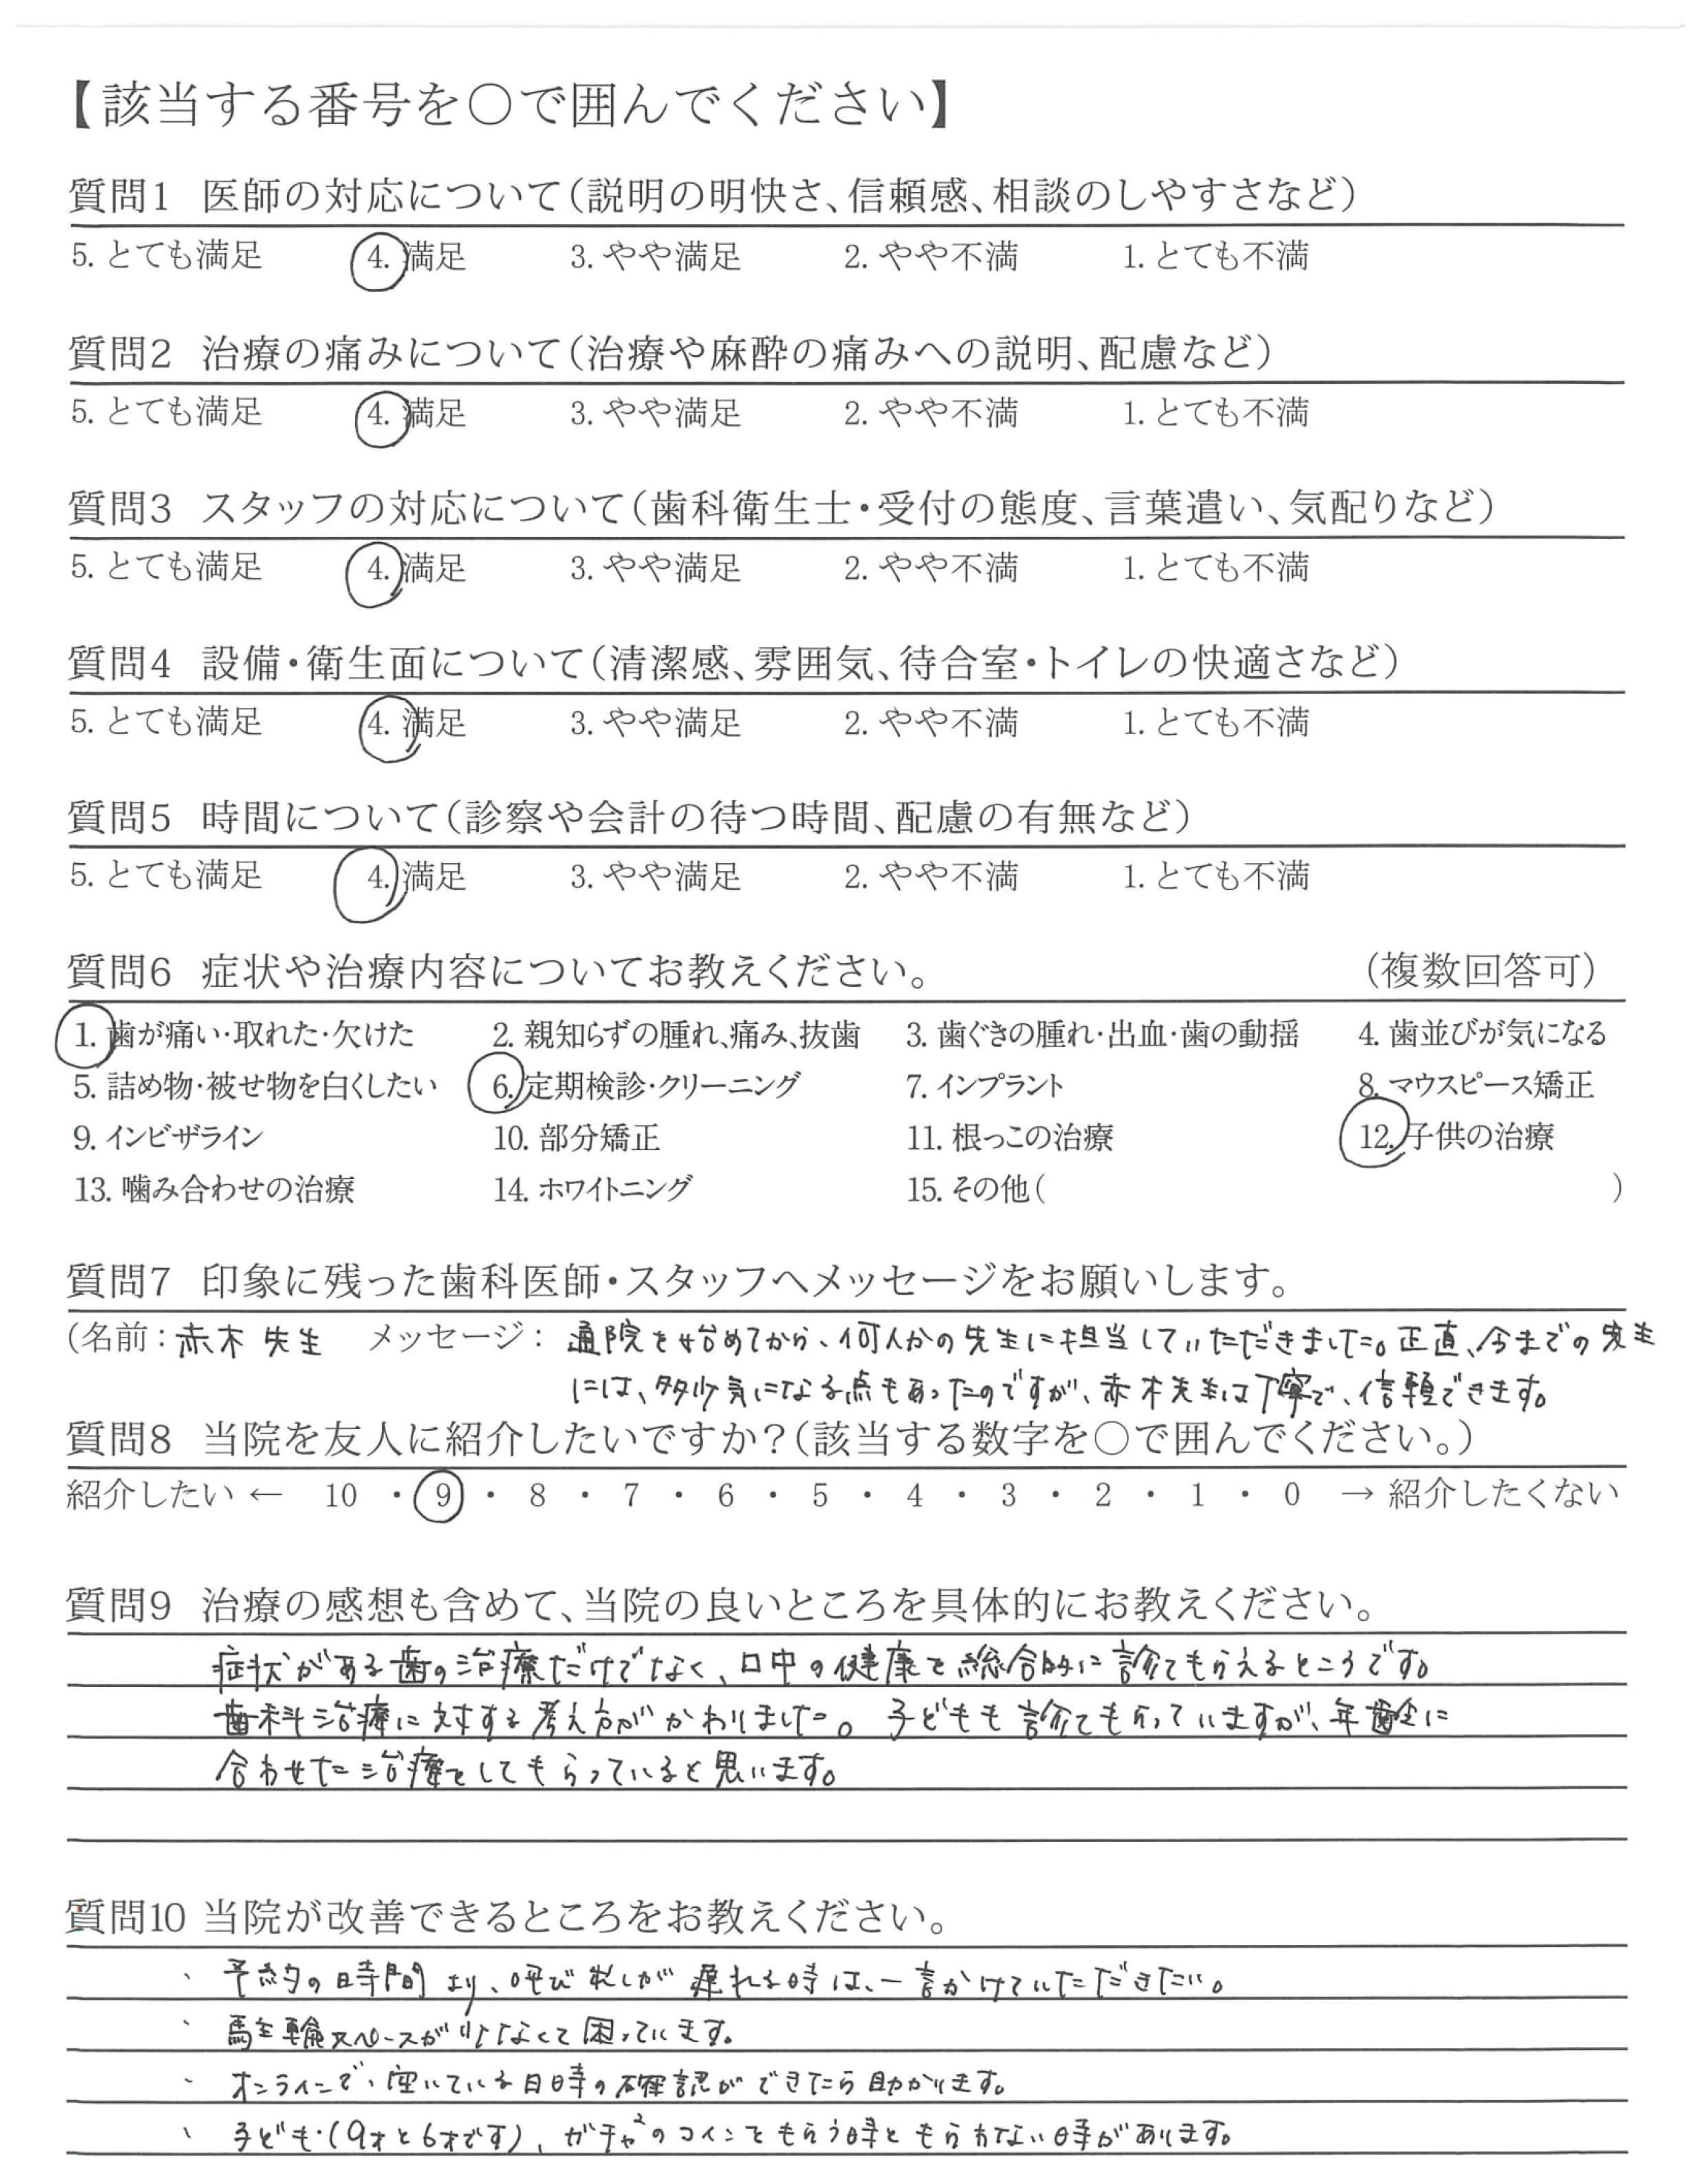 【該当する番号を〇で囲んでください】
質問1 医師の対応について（説明の明快さ、信頼感、相談のしやすさなど）
5. とても満足 4. 満足 3. やや満足 2. やや不満 1. とても不満
質問2 治療の痛みについて（治療や麻酔の痛みへの説明、配慮など）
5. とても満足 4. 満足 3. やや満足 2. やや不満 1. とても不満
質問3 スタッフの対応について（歯科衛生士・受付の態度、言葉遣い、気配りなど）
5. とても満足 4. 満足 3. やや満足 2. やや不満 1. とても不満
質問4 設備・衛生面について（清潔感、雰囲気、待合室・トイレの快適さなど）
5. とても満足 4. 満足 3. やや満足 2. やや不満 1. とても不満
質問5 時間について（診察や会計の待つ時間、配慮の有無など）
5. とても満足 4. 満足 3. やや満足 2. やや不満 1. とても不満
質問6 症状や治療内容についてお教えください。 （複数回答可）
1. 歯が痛い・取れた・欠けた 2. 親知らずの腫れ、痛み、抜歯 3. 歯ぐきの腫れ・出血・歯の動揺 4. 歯並びが気になる
5. 詰め物・被せ物を白くしたい 6. 定期検診・クリーニング 7. インプラント 8. マウスピース矯正
9. インビザライン 10. 部分矯正 11. 根っこの治療 12. 子供の治療
13. 噛み合わせの治療 14. ホワイトニング 15. その他（ ）
質問7 印象に残った歯科医師・スタッフへメッセージをお願いします。
（名前：赤木 先生 メッセージ： 通院を始めてから、何人かの先生に担当していただきました。正直、今までの先生
には、多少気になる点もあったのですが、赤木先生は丁寧で、信頼できます。
質問8 当院を友人に紹介したいですか？（該当する数字を〇で囲んでください。）
紹介したい ← 10 ・ 9 ・ 8 ・ 7 ・ 6 ・ 5 ・ 4 ・ 3 ・ 2 ・ 1 ・ 0 → 紹介したくない
質問9 治療の感想も含めて、当院の良いところを具体的にお教えください。
症状がある歯の治療だけでなく、口中の健康を総合的に診てもらえるところです。
歯科治療に対する考え方がかわりました。 子どもも診てもらっていますが、年齢に
合わせた治療をしてもらっていると思います。
質問10 当院が改善できるところをお教えください。
、 予約の時間より、呼び出しが遅れる時は、一言かけていただきたい。
、 駐輪スペースが少なくて困っています。
、 オンラインで、空いている日時の確認ができたら助かります。
、 子ども（9才と6才です）、ガチャ²のコインをもらう時ともらわない時があります。